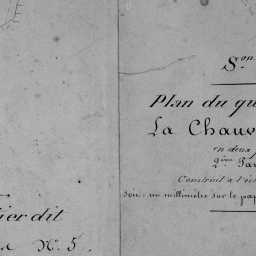 Son
Plan du qu
La Chauv
en deux
2ème Par
Construit à l'éch
soit: un millimètre sur le pap
ier dit
N° 5.